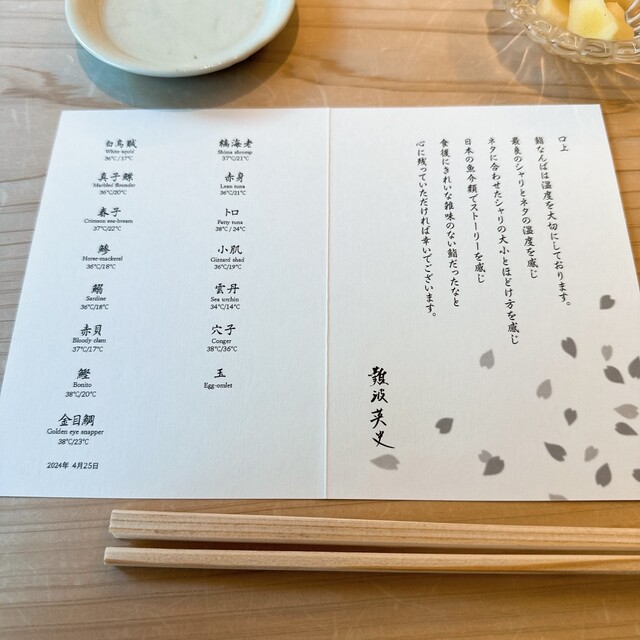 白烏賊
White-squid
36℃/17℃
真子鰈
Marbled flounder
36℃/20℃
春子
Crimson sea-bream
37℃/22℃
鯵
Horse-mackerel
36℃/18℃
鰯
Sardine
36℃/18℃
赤貝
Bloody clam
37℃/17℃
鰹
Bonito
38℃/20℃
金目鯛
Golden eye snapper
38℃/23℃
2024年 4月25日
縞海老
Shima shrimp
37℃/21℃
赤身
Lean tuna
36℃/21℃
トロ
Fatty tuna
38℃/24℃
小肌
Gizzard shad
36℃/19℃
雲丹
Sea urchin
34℃/14℃
穴子
Conger
38℃/36℃
玉
Egg-omlet
口上
鮨なんばは温度を大切にしております。
最良のシャリとネタの温度を感じ
ネタに合わせたシャリの大小とほどけ方を感じ
日本の魚介類でストーリーを感じ
食後にきれいな雑味のない鮨だったなと
心に残っていただければ幸いでございます。
難波英史